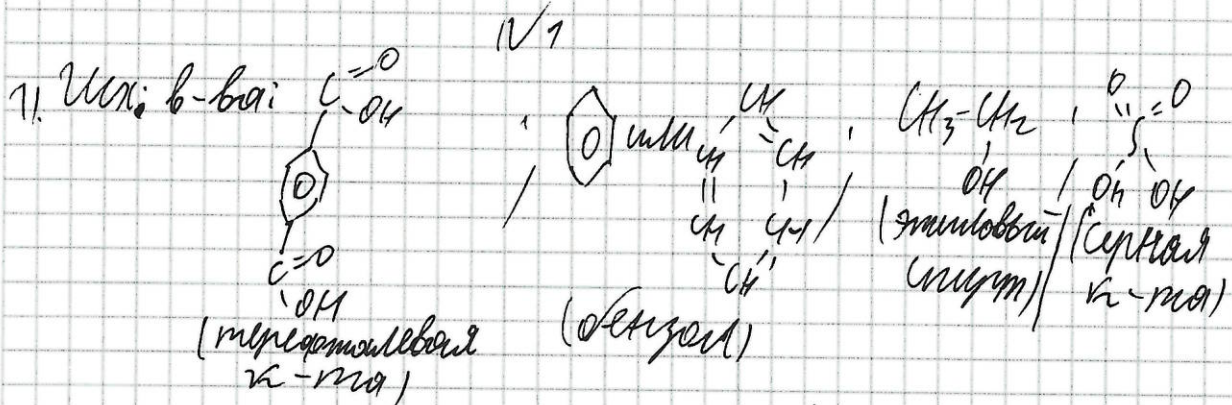 №1
1). Исх. в-ва:
C=O
OH
C=O
OH
(терефталевая
к-та)
;
или
CH
CH
CH
CH
CH
CH
(бензол)
;
CH3-CH2
OH
(этиловый
спирт)
;
O
O
S
OH
OH
(серная
к-та)